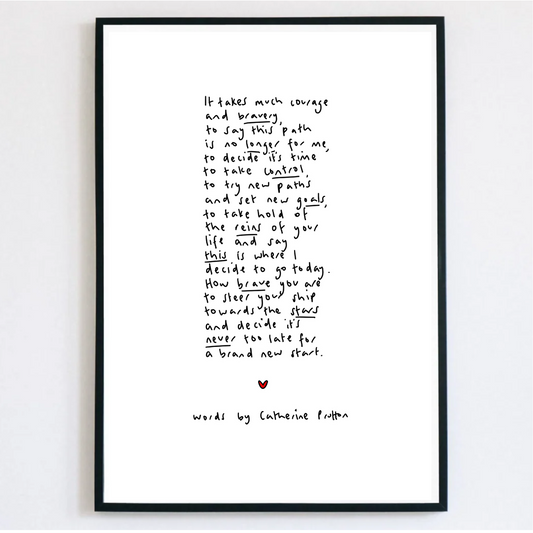 It takes much courage
and bravery,
to say this path
is no longer for me,
to decide it's time
to take control,
to try new paths
and set new goals,
to take hold of
the reins of your
life and say
this is where I
decide to go today.
How brave you are
to steer your ship
towards the stars
and decide it's
never too late for
a brand new start.
words by Catherine Prutton